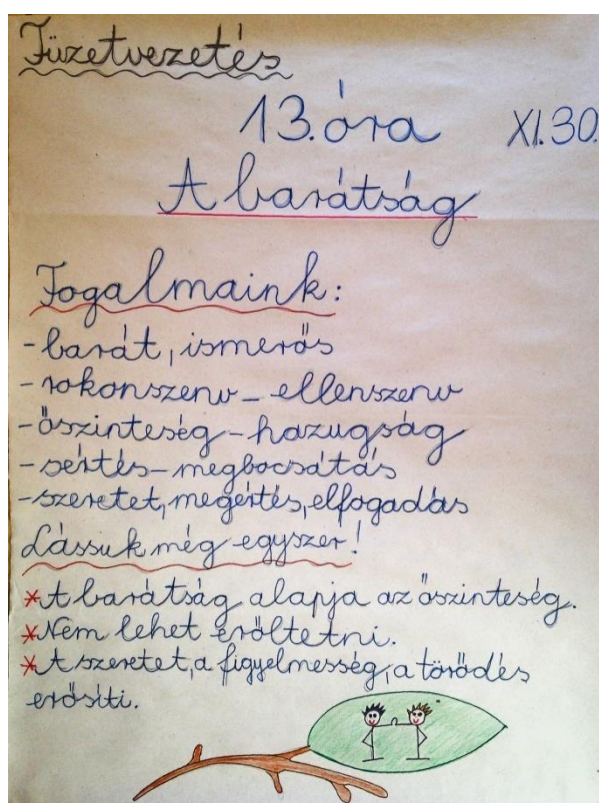 Füzetvezetés
13. óra XI. 30.
A barátság
Fogalmaink:
- barát, ismerős
- rokonszenv - ellenszenv
- őszinteség - hazugság
- sértés - megbocsátás
- szeretet, megértés, elfogadás
Lássuk még egyszer!
* A barátság alapja az őszinteség.
* Nem lehet erőltetni.
* A szeretet, a figyelmesség, a törődés
erősíti.